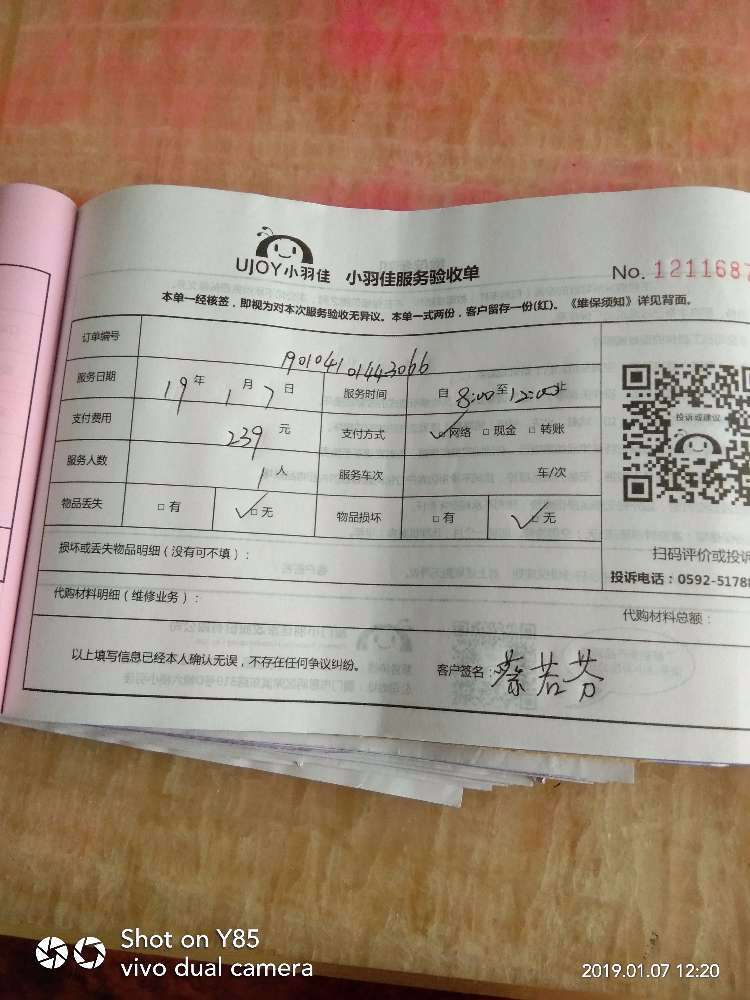 UJOY小羽佳 小羽佳服务验收单 No. 1211687
本单一经核签，即视为对本次服务验收无异议。本单一式两份，客户留存一份(红)。《维保须知》详见背面。
订单编号 190104101443066
服务日期 19年 1月 7日 服务时间 自 8:00至12:00止
支付费用 239元 支付方式 ✓□网络 □现金 □转账
投诉或建议
服务人数 1人 服务车次 车/次
物品丢失 □有 ✓□无 物品损坏 □有 ✓□无
损坏或丢失物品明细（没有可不填）：
扫码评价或投诉
投诉电话：0592-51788
代购材料明细（维修业务）： 代购材料总额：
以上填写信息已经本人确认无误，不存在任何争议纠纷。 客户签名：蔡若芬
Shot on Y85
vivo dual camera
2019.01.07 12:20